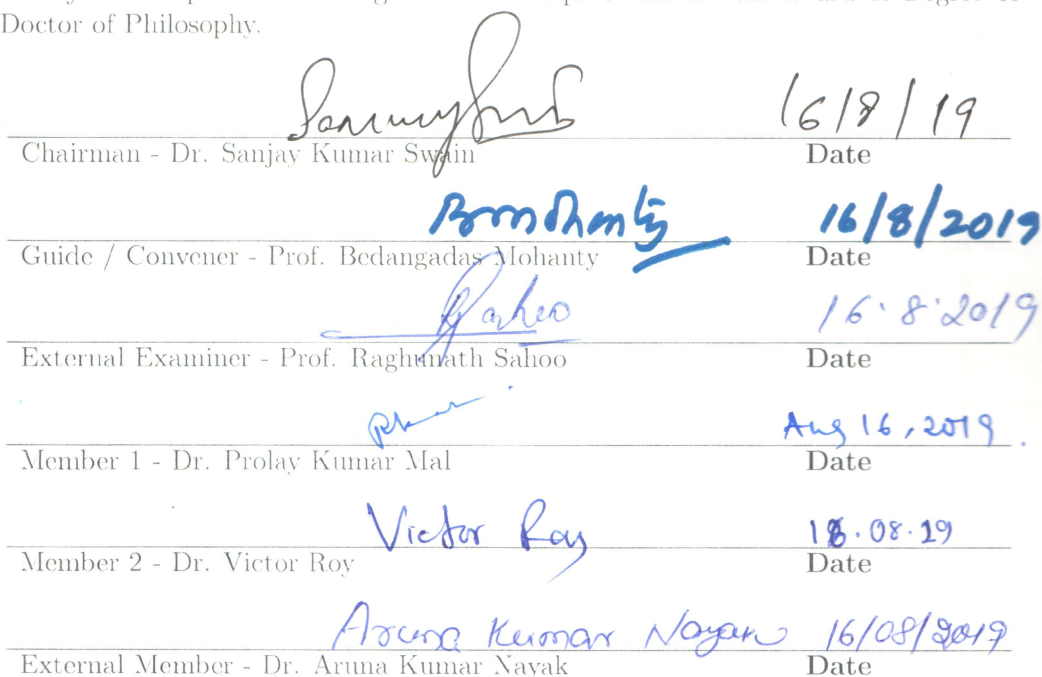 Doctor of Philosophy.
16/8/19
Chairman - Dr. Sanjay Kumar Swain Date
Bmohanty 16/8/2019
Guide / Convener - Prof. Bedangadas Mohanty Date
Sahoo 16.8.2019
External Examiner - Prof. Raghunath Sahoo Date
Aug 16, 2019.
Member 1 - Dr. Prolay Kumar Mal Date
Victor Roy 16.08.19
Member 2 - Dr. Victor Roy Date
Aruna Kumar Nayak 16/08/2019
External Member - Dr. Aruna Kumar Nayak Date